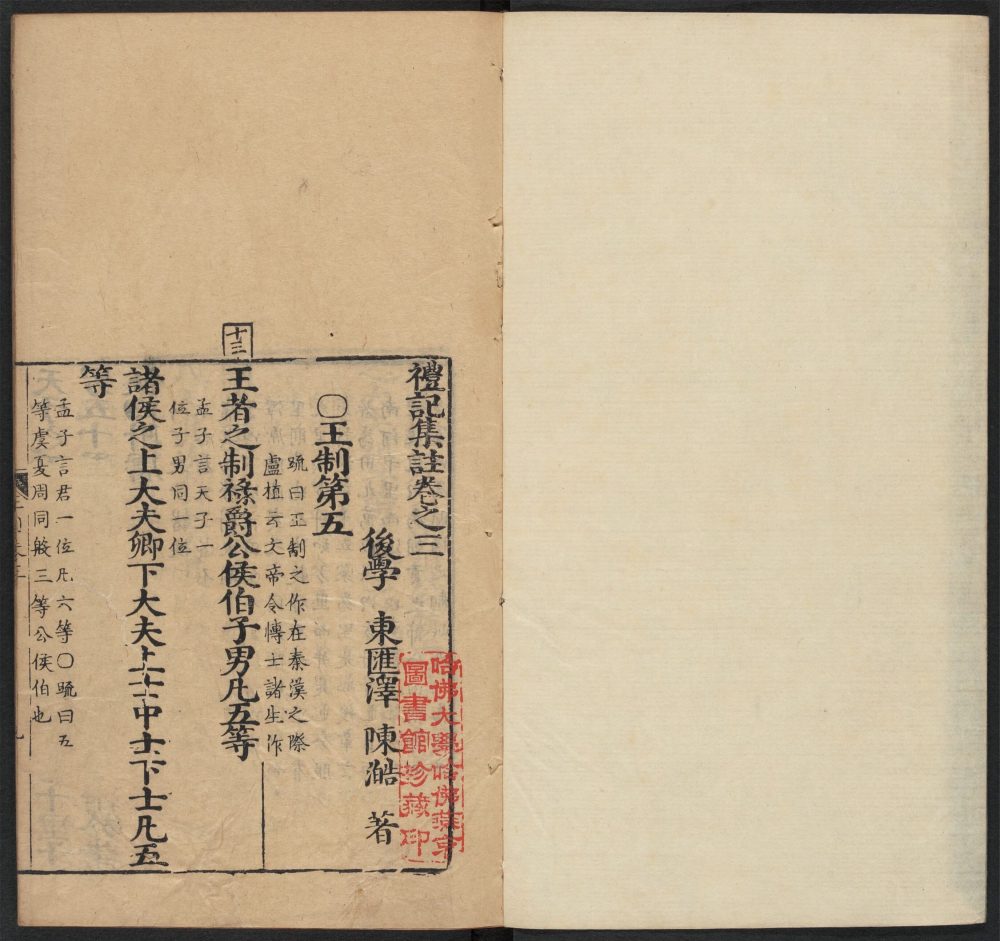 禮記集註卷之三
後學 東匯澤 陳澔 著
○王制第五
疏曰王制之作在秦漢之際
盧植云文帝令博士諸生作
十三
王者之制祿爵公侯伯子男凡五等
孟子言天子一
位子男同一位
諸侯之上大夫卿下大夫上士中士下士凡五
等
孟子言君一位凡六等○疏曰五
等虞夏周同殷三等公侯伯也
哈佛大學哈佛燕京
圖書館珍藏印